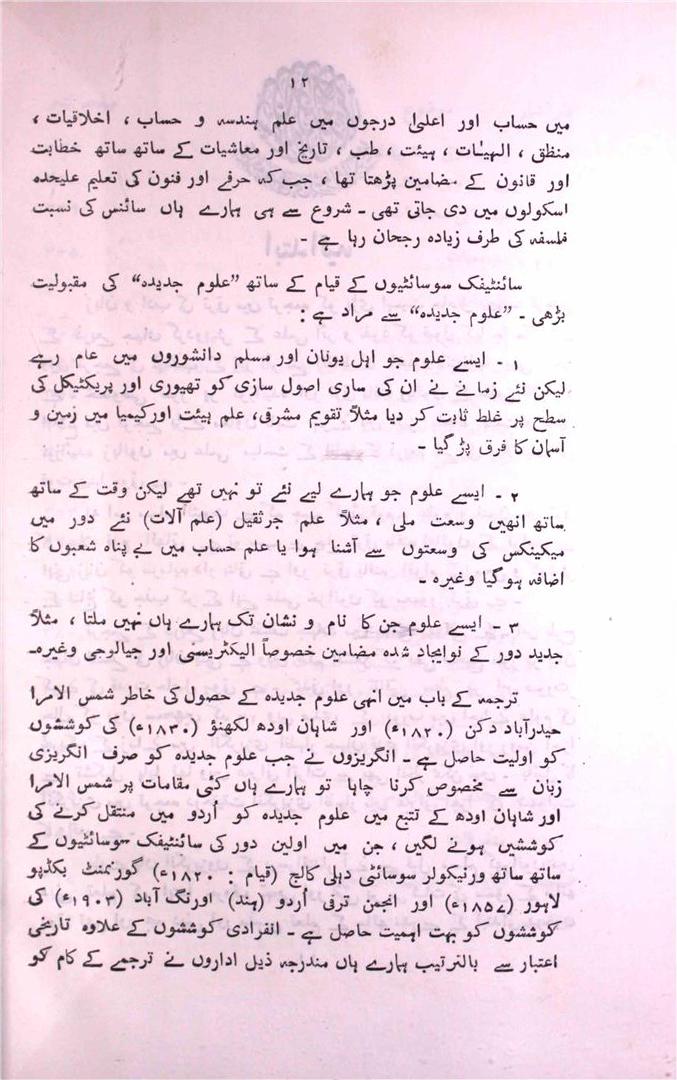 ۱۲
میں حساب اور اعلیٰ درجوں میں علم ہندسہ و حساب ، اخلاقیات ،
منطق ، الہیٰات ، ہیئت ، طب ، تاریخ اور معاشیات کے ساتھ ساتھ خطابت
اور قانون کے مضامین پڑھتا تھا ، جب کہ حرفے اور فنون کی تعلیم علیحدہ
اسکولوں میں دی جاتی تھی ۔ شروع سے ہی ہمارے ہاں سائنس کی نسبت
فلسفہ کی طرف زیادہ رجحان رہا ہے ۔
سائنٹیفک سوسائٹیوں کے قیام کے ساتھ ”علوم جدیدہ“ کی مقبولیت
بڑھی ۔ ”علوم جدیدہ“ سے مراد ہے :
۱ ۔ ایسے علوم جو اہل یونان اور مسلم دانشوروں میں عام رہے
لیکن نئے زمانے نے ان کی ساری اصول سازی کو تھیوری اور پریکٹیکل کی
سطح پر غلط ثابت کر دیا مثلاً تقویم مشرق، علم ہیئت اور کیمیا میں زمین و
آسمان کا فرق پڑ گیا ۔
۲ ۔ ایسے علوم جو ہمارے لیے نئے تو نہیں تھے لیکن وقت کے ساتھ
ساتھ انھیں وسعت ملی ، مثلاً علم جرثقیل (علم آلات) نئے دور میں
میکینکس کی وسعتوں سے آشنا ہوا یا علم حساب میں بے پناہ شعبوں کا
اضافہ ہو گیا وغیرہ ۔
۳ ۔ ایسے علوم جن کا نام و نشان تک ہمارے ہاں نہیں ملتا ، مثلاً
جدید دور کے نوایجاد شدہ مضامین خصوصاً الیکٹریسٹی اور جیالوجی وغیرہ۔
ترجمہ کے باب میں انھی علوم جدیدہ کے حصول کی خاطر شمس الامرا
حیدرآباد دکن (۱۸۲۰ء) اور شاہان اودھ لکھنؤ (۱۸۳۰ء) کی کوششوں
کو اولیت حاصل ہے ۔ انگریزوں نے جب علوم جدیدہ کو صرف انگریزی
زبان سے مخصوص کرنا چاہا تو ہمارے ہاں کئی مقامات پر شمس الامرا
اور شاہان اودھ کے تتبع میں علوم جدیدہ کو اُردو میں منتقل کرنے کی
کوششیں ہونے لگیں ، جن میں اولین دور کی سائنٹیفک سوسائٹیوں کے
ساتھ ساتھ ورنیکولر سوسائٹی دہلی کالج (قیام : ۱۸۲۰ء) گورنمنٹ بکڈپو
لاہور (۱۸۵۷ء) اور انجمن ترقی اُردو (ہند) اورنگ آباد (۱۹۰۳ء) کی
کوششوں کو بہت اہمیت حاصل ہے ۔ انفرادی کوششوں کے علاوہ تاریخی
اعتبار سے بالترتیب ہمارے ہاں مندرجہ ذیل اداروں نے ترجمے کے کام کو